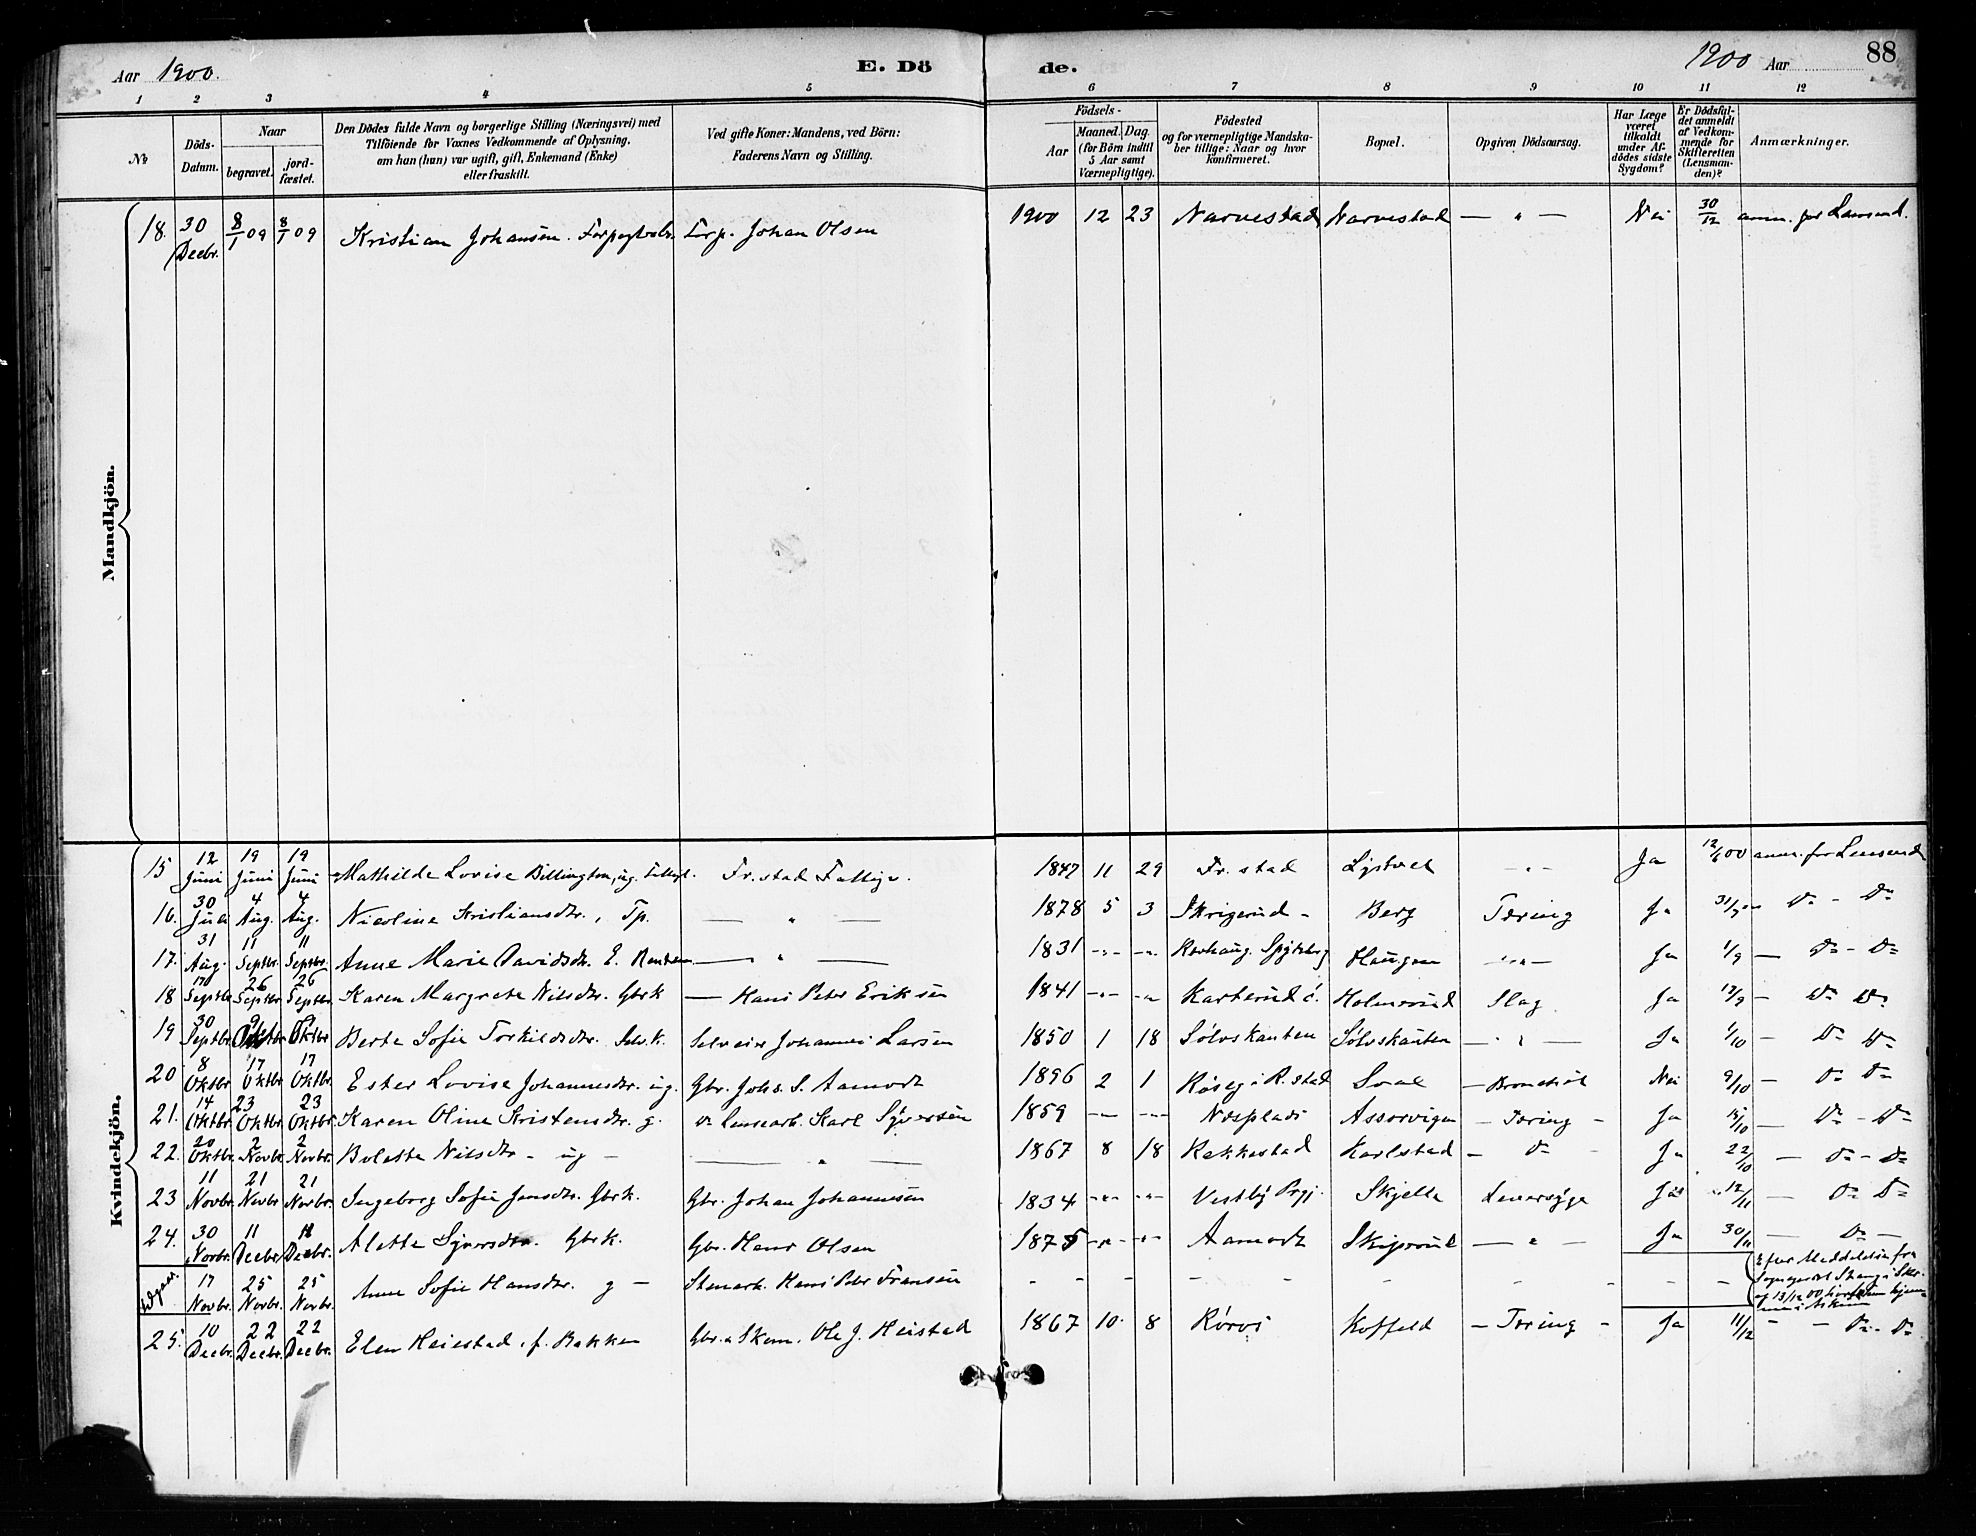 Aar 1900.
E. Dö
de.
1900 Aar
88
1 2 3 4 5 6 7 8 9 10 11 12
№
Döds-
Datum.
Naar
begravet.
jord-
fæstet.
Den Dödes fulde Navn og borgerlige Stilling (Næringsvei) med
Tilföiende for Voxnes Vedkommende af Oplysning,
om han (hun) var ugift, gift, Enkemand (Enke)
eller fraskilt.
Ved gifte Koner: Mandens, ved Börn:
Faderens Navn og Stilling.
Födsels-
Aar
Maaned. Dag.
(for Börn indtil
5 Aar samt
Værnepligtige).
Födested
og for værnepligtige Mandska-
ber tillige: Naar og hvor
konfirmeret.
Bopæl.
Opgiven Dödsaarsag.
Har Læge
været
tilkaldt
under Af-
dödes sidste
Sygdom?
Er Dödsfal-
det anmeldt
af Vedkom-
mende for
Skifteretten
(Lensman-
den)?
Anmærkninger.
Mandkjön.
18. 30 Decbr. 8/1 09 8/1 09 Kristian Johansen. Forp. Johan Olsen 1900 12 23 Narvestad Narvestad — " — Nei 30/12 anm. for Lensmd.
Kvindekjön.
15 12 Juni 19 Juni 19 Juni Mathilde Lovise Billington, ug. Fr.stad Fattigv. 1847 11 29 Fr.stad Lystvet - " - Ja 12/6 00 anm. for Lensmd
16. 30 Juli 4 Aug. 4 Aug. Nicoline Kristiansdtr., Tp. — " — 1878 5 3 Skrigerud - Berg Tæring Ja 31/7 — Do - Do
17. 31 Aug. 11 Septbr. 11 Septbr. Anne Marie Davidsdtr. E. — " — 1831 -"- -"- Spydeberg Haugen -"- Ja 1/9 — Do - Do
18 Septbr. 26 Septbr. 26 Septbr. Karen Margrete Nilsdtr. Gbrk — Hans Peter Eriksen 1841 -"- -"- Karterud Holmsrud Slag Ja 17/9 — Do Do
19 30 Septbr. 9 Oktbr. 9 Oktbr. Berte Sofie Torkildsdtr. Selv.k. Selveier Johannes Larsen 1850 1 18 Sølvskauten Sølvskauten — " — Ja 1/10 — Do Do
20 8 Oktbr. 17 Oktbr. 17 Oktbr. Ester Lovise Johannesdtr. ug. Gbr. Johs. S. Aamodt 1896 2 1 R.stad — Nei 9/10 — Do Do
21. 14 Oktbr. 23 Oktbr. 23 Oktbr. Karen Oline Kristensdtr. g. Karl Syversen 1859 -"- -"- Næsplads Assorvigen - Tæring - Ja — Do - Do
22. 20 Oktbr. 2 Novbr. 2 Novbr. Bolette Nilsdtr - ug - — " — 1867 8 18 Rakkestad Karlstad - Do Ja 22/10 — Do - Do
23 11 Novbr. 21 Novbr. 21 Novbr. Ingeborg Sofie Jensdtr. Gbrk. Gbr. Johan Johannesen 1834 -"- -"- Vestby Prgj. Skjelle Leversyge Ja 12/11 — Do Do
24. 30 Novbr. 11 Decbr. 11 Decbr. Alette Syversdtr. Gbrk. Gbr. Hans Olsen 1875 -"- -"- Aamodt Skipsrud — " — Ja 30/11 — Do —
Udgaar. 17 Novbr. 25 Novbr. 25 Novbr. Anne Sofie Hansdtr. g — Stenarb. Hans Peter Fransen - - - - - - - - (efter Meddelelse fra
Sognepræst Stang i
af 13/12 00
i Askim
25. 10 Decbr. 22 Decbr. 22 Decbr. Elen Heiestad, f. Bakken Gbr. & Skom. Ole J. Heistad 1867 10. 8 Rørvi Koffeld - Tæring - Ja 11/12 - - Do - Do